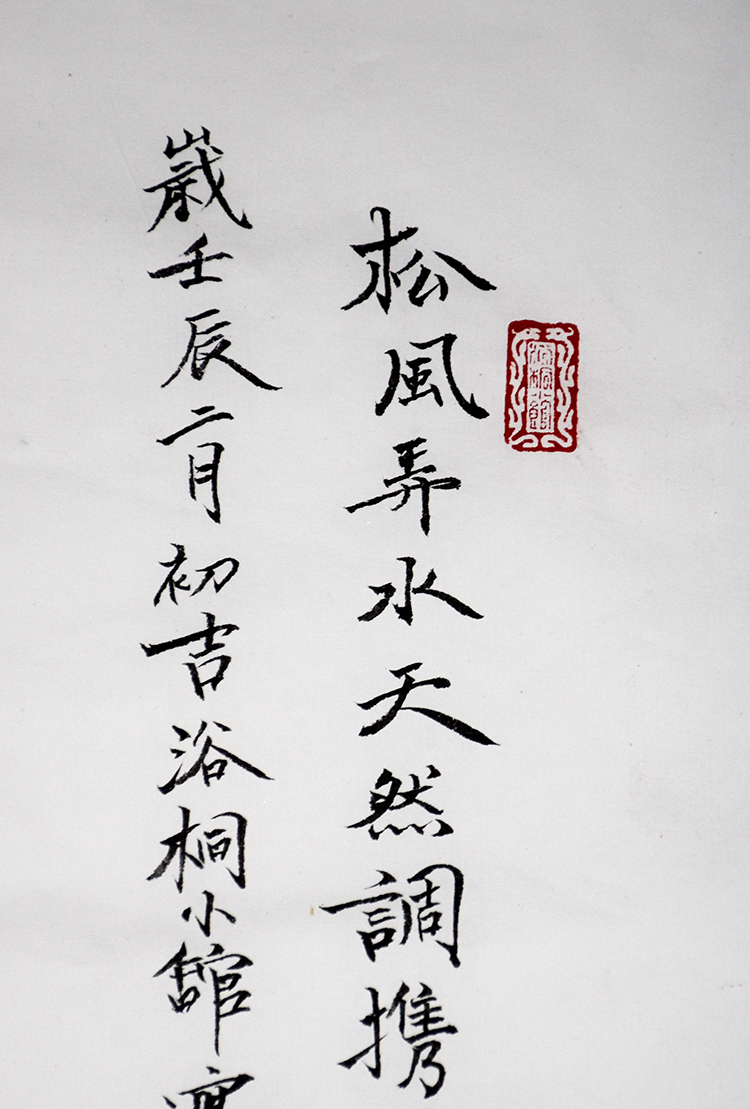 松風弄水天然調携
歲壬辰二月初吉浴桐小舘
浴桐小館